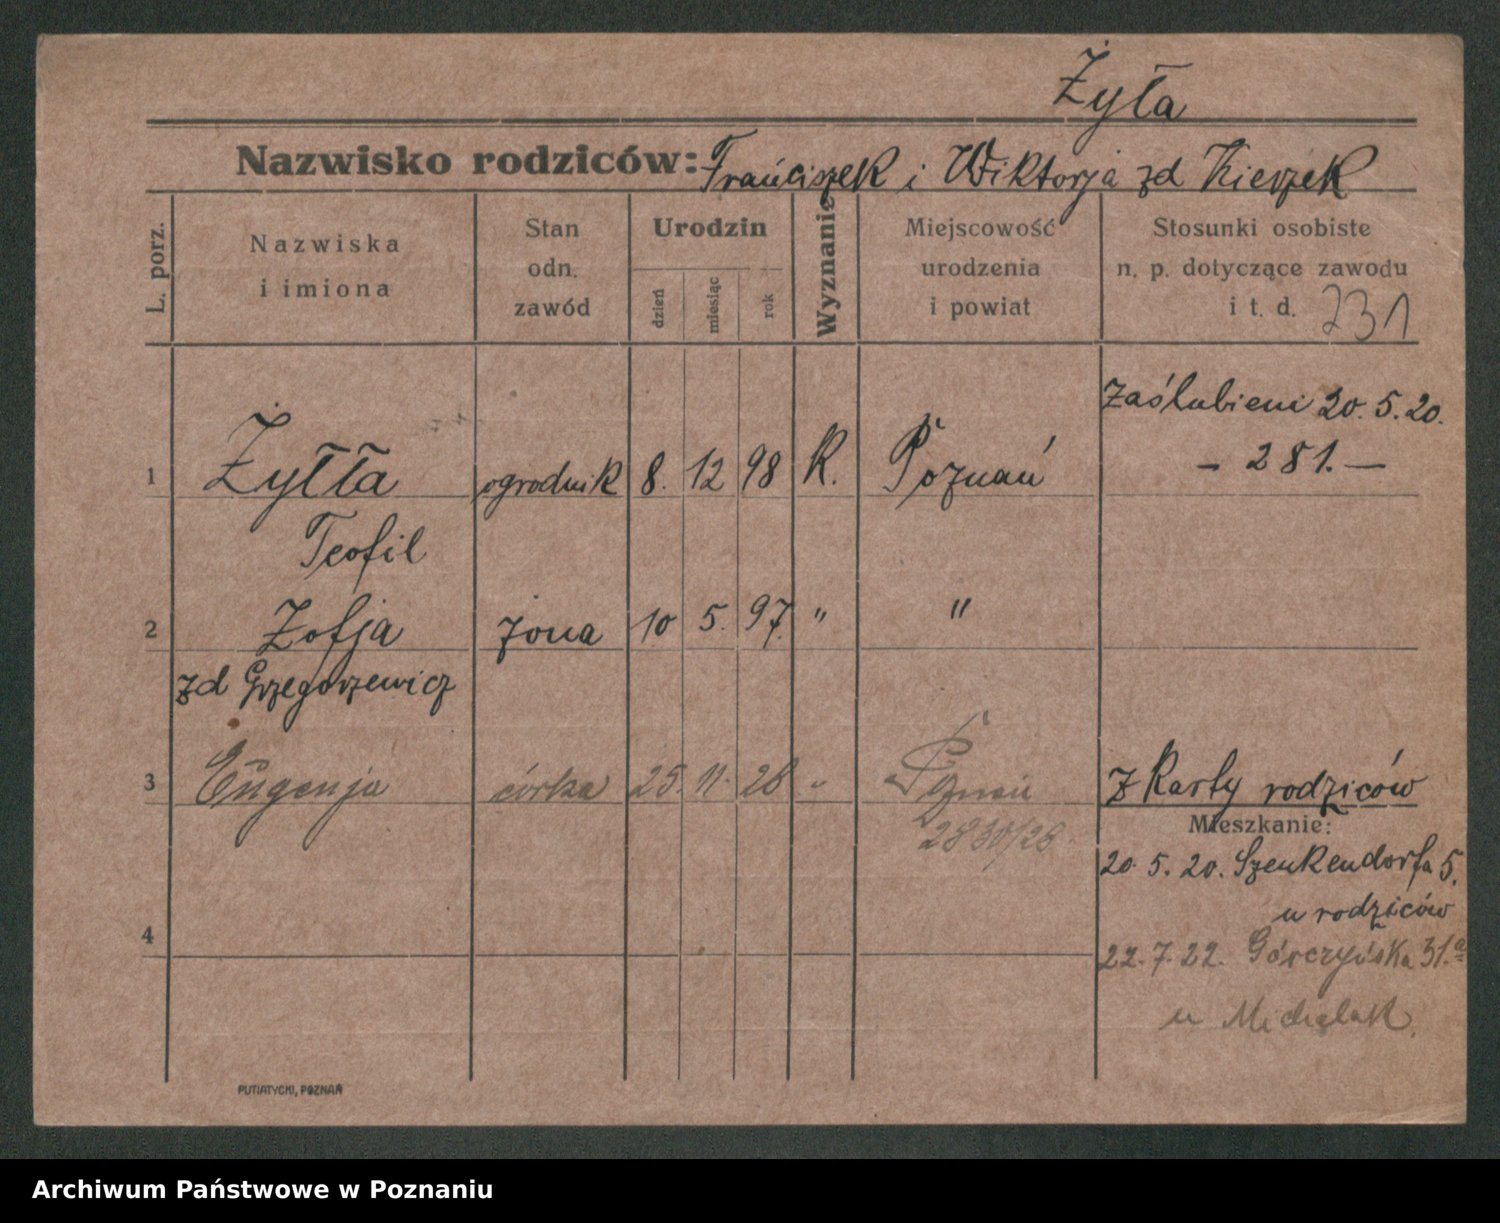 Żyła
Nazwisko rodziców: Franciszek i Wiktorja zd Kierzek
L. porz.
Nazwiska i imiona
Stan odn. zawód
Urodzin
dzień miesiąc rok
Wyznanie
Miejscowość urodzenia i powiat
Stosunki osobiste n. p. dotyczące zawodu i t. d. 231
Zaślubieni 20. 5. 20.
- 281. -
1 Żyłła ogrodnik 8. 12 98 K. Poznań
Teofil
2 Zofja żona 10 5. 97. " "
zd Grzegorzewicz
3 Eugenja córka 25. 11. 28 "
Z Karty rodziców
Mieszkanie:
20. 5. 20. Szenkendorfa 5.
u rodziców
4
22. 7. 22. Górczyńska 31.a
u Michalak.
PUTIATYCKI, POZNAŃ
Archiwum Państwowe w Poznaniu